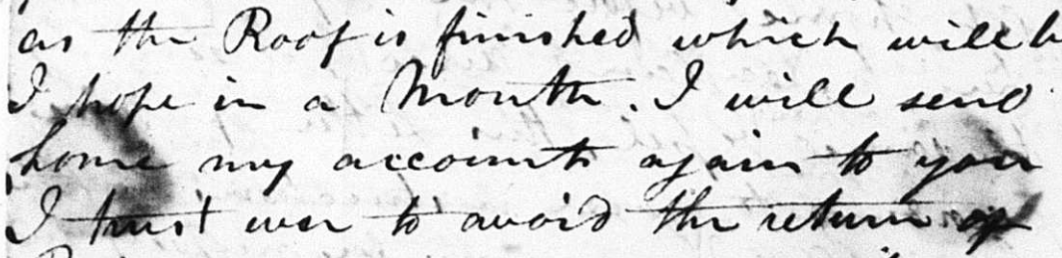 as the Roof is finished which will b
I hope in a Month. I will send
home my accounts again to you
I trust ever to avoid the return of